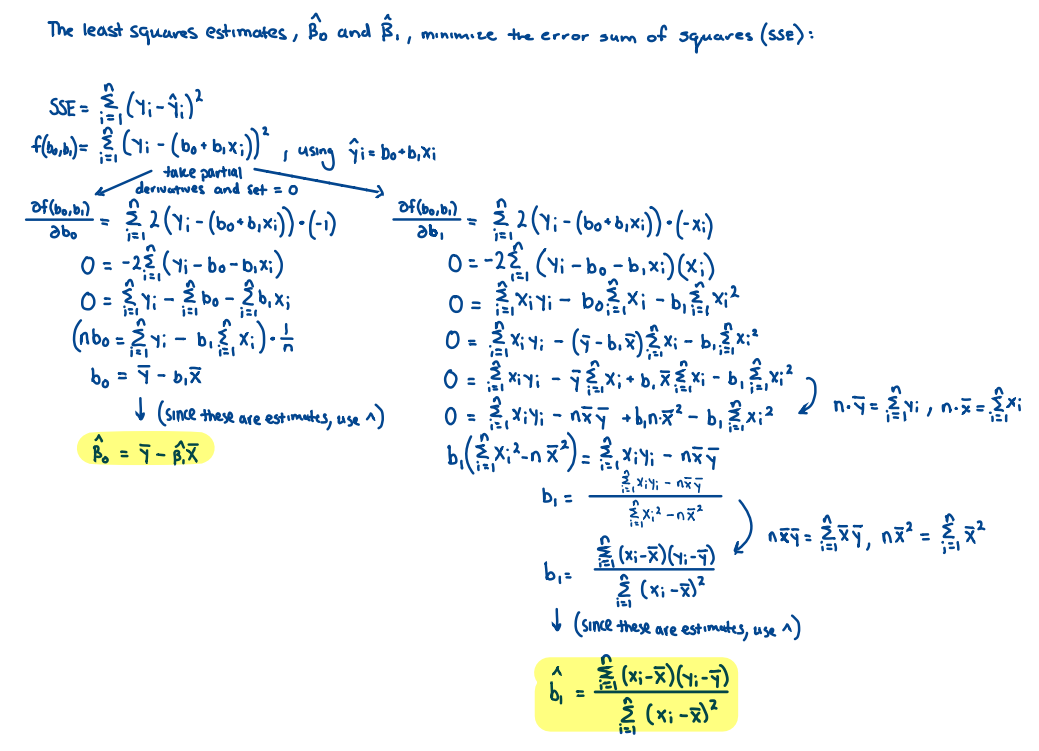 The least squares estimates, β̂₀ and β̂₁, minimize the error sum of squares (SSE):
SSE = Σᵢ₌₁ⁿ (yᵢ - ŷᵢ)²
f(b₀,b₁) = Σᵢ₌₁ⁿ (yᵢ - (b₀ + b₁xᵢ))² , using ŷᵢ = b₀ + b₁xᵢ
take partial
derivatives and set = 0
∂f(b₀,b₁)/∂b₀ = Σᵢ₌₁ⁿ 2(yᵢ - (b₀ + b₁xᵢ)) · (-1)
0 = -2Σᵢ₌₁ⁿ (yᵢ - b₀ - b₁xᵢ)
0 = Σᵢ₌₁ⁿ yᵢ - Σᵢ₌₁ⁿ b₀ - Σᵢ₌₁ⁿ b₁xᵢ
(nb₀ = Σᵢ₌₁ⁿ yᵢ - b₁ Σᵢ₌₁ⁿ xᵢ) · 1/n
b₀ = ȳ - b₁x̄
↓ (since these are estimates, use ^)
β̂₀ = ȳ - β̂₁x̄
∂f(b₀,b₁)/∂b₁ = Σᵢ₌₁ⁿ 2(yᵢ - (b₀ + b₁xᵢ)) · (-xᵢ)
0 = -2Σᵢ₌₁ⁿ (yᵢ - b₀ - b₁xᵢ)(xᵢ)
0 = Σᵢ₌₁ⁿ xᵢyᵢ - b₀Σᵢ₌₁ⁿ xᵢ - b₁Σᵢ₌₁ⁿ xᵢ²
0 = Σᵢ₌₁ⁿ xᵢyᵢ - (ȳ - b₁x̄)Σᵢ₌₁ⁿ xᵢ - b₁Σᵢ₌₁ⁿ xᵢ²
0 = Σᵢ₌₁ⁿ xᵢyᵢ - ȳΣᵢ₌₁ⁿ xᵢ + b₁x̄Σᵢ₌₁ⁿ xᵢ - b₁Σᵢ₌₁ⁿ xᵢ²
n·ȳ = Σᵢ₌₁ⁿ yᵢ , n·x̄ = Σᵢ₌₁ⁿ xᵢ
0 = Σᵢ₌₁ⁿ xᵢyᵢ - nx̄ȳ + b₁n·x̄² - b₁Σᵢ₌₁ⁿ xᵢ²
b₁(Σᵢ₌₁ⁿ xᵢ² - nx̄²) = Σᵢ₌₁ⁿ xᵢyᵢ - nx̄ȳ
b₁ = (Σᵢ₌₁ⁿ xᵢyᵢ - nx̄ȳ) / (Σᵢ₌₁ⁿ xᵢ² - nx̄²)
nx̄ȳ = Σᵢ₌₁ⁿ x̄ȳ, nx̄² = Σᵢ₌₁ⁿ x̄²
b₁ = Σᵢ₌₁ⁿ (xᵢ - x̄)(yᵢ - ȳ) / Σᵢ₌₁ⁿ (xᵢ - x̄)²
↓ (since these are estimates, use ^)
b̂₁ = Σᵢ₌₁ⁿ (xᵢ - x̄)(yᵢ - ȳ) / Σᵢ₌₁ⁿ (xᵢ - x̄)²